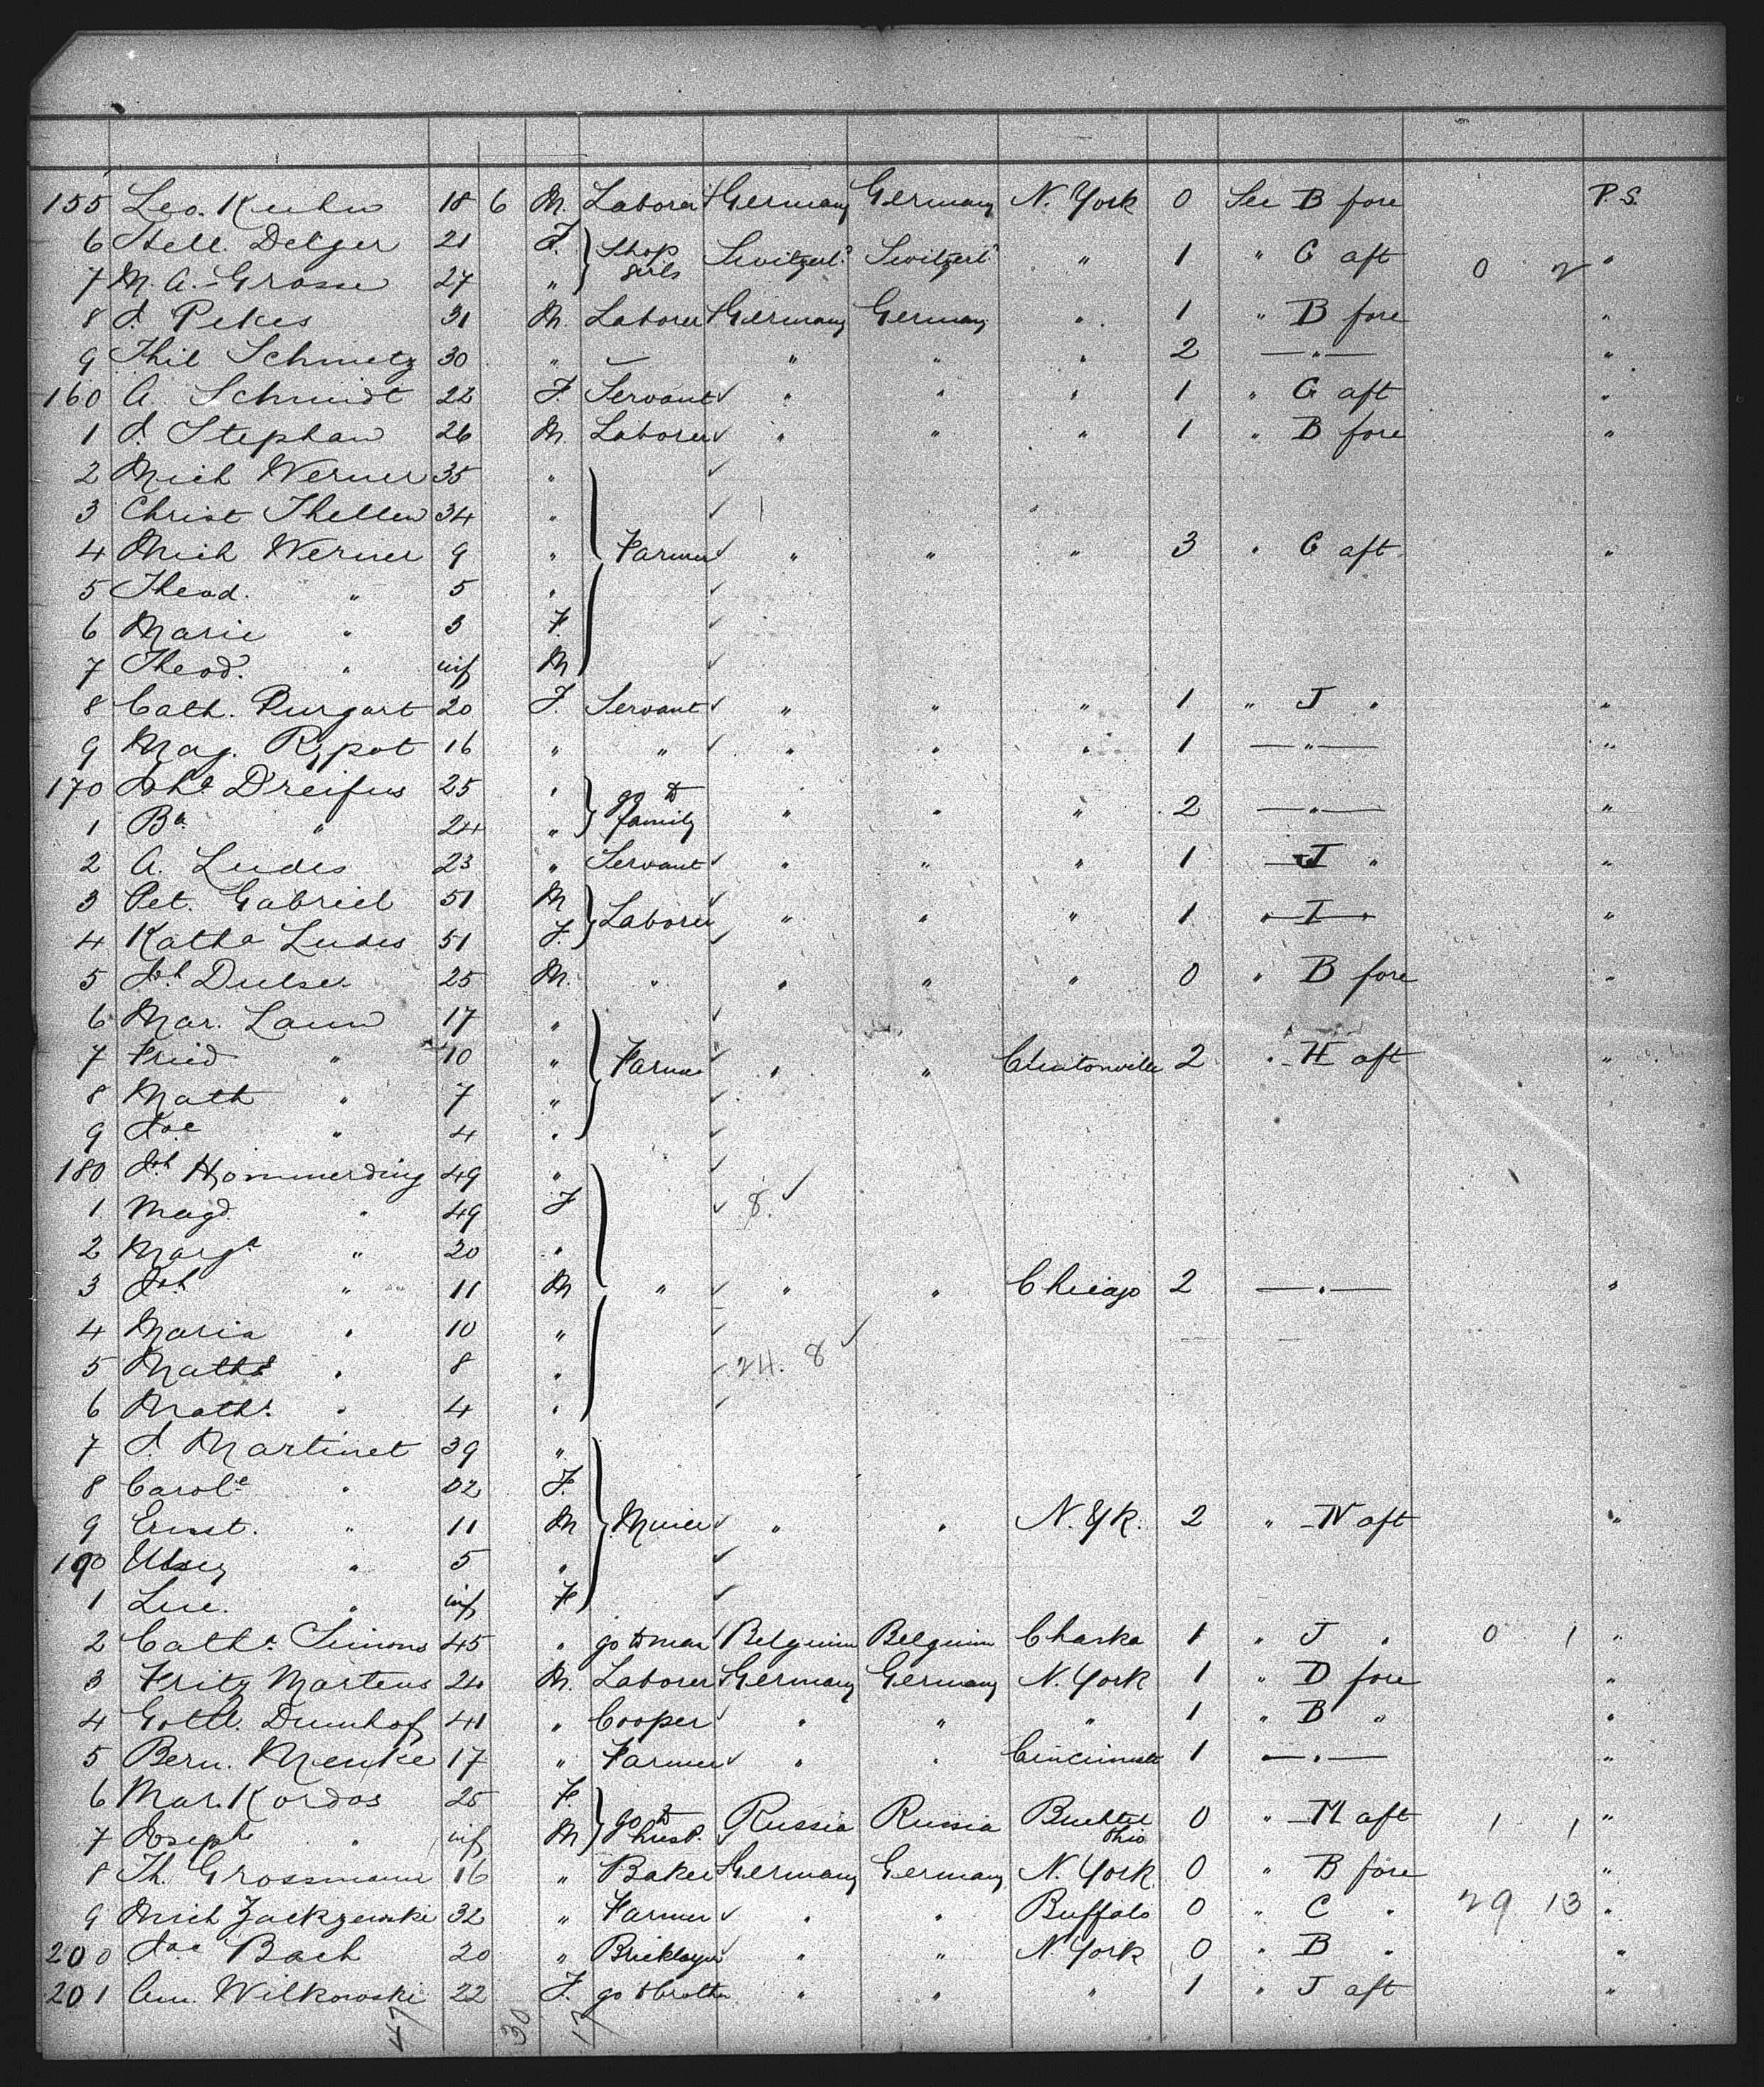 155 Leo. Kuhn 18 6 M. Laborer Germany Germany N. York 0 See B fore P.S.
6 Stell. Delger 21 F. Shop girls Switzerl.d Switzerl.d " 1 " G aft "
7 M. A. Grosse 27 " 0 2
8 J. Pekes 31 M. Laborer Germany Germany " 1 " B fore "
9 Phil Schmetz 30 " " " " 2 — " — "
160 A. Schmidt 22 F. Servant " " " 1 " G aft "
1 J. Stephan 26 M. Laborer " " " 1 " B fore "
2 Mich Werner 35 "
3 Christ Thellen 34 "
4 Mich Werner 9 " Farmer " " " 3 " G aft "
5 Theod. " 5 "
6 Marie " 3 F.
7 Theod. " inf M
8 Cath. Purgart 20 F. Servant " " " 1 " J " "
9 Mag. Rypot 16 " " " " " 1 — " — "
170 Joha Dreifus 25 " go to family " " " 2 — " — "
1 Ba " 24 "
2 A. Ludes 23 " Servant " " " 1 J " "
3 Pet. Gabriel 51 M Laborer " " " 1 " I " "
4 Katha Ludes 51 F.
5 Joh Dulser 25 M. " " " " 0 " B fore "
6 Mar. Lauw 17 "
7 Fried " 10 " Farmer " " Clintonville 2 " H aft "
8 Math " 7 "
9 Jac " 4 "
180 Joh Hommerding 49 "
1 Magd. " 49 F 8.
2 Marga " 20 "
3 Joh " 11 M " " " Chicago 2 — " — "
4 Maria " 10 "
5 Maths " 8 " 24. 8
6 Maths " 4 "
7 J. Martinet 39 "
8 Carole " 32 F.
9 Ernst. " 11 M Miner " " N. YR. 2 " N aft "
190 " 5 "
1 Lue. " inf F
2 Catha Simons 45 " go to man Belgium Belgium Charka 1 " J " 0 1 "
3 Fritz Martens 24 M. Laborer Germany Germany N. York 1 " D fore "
4 Gottl. Dumhof 41 " Cooper " " " 1 " B " "
5 Bern. Menke 17 " Farmer " " Cincinnati 1 — " — "
6 Mar. Kordos 25 F. go to husb. Russia Russia Buchtel Ohio 0 " M aft 1 1 "
7 Joseph " inf M
8 Th. Grossmann 16 " Baker Germany Germany N. York 0 " B fore "
9 Mich Zackzewski 32 " Farmer " " Buffalo 0 " C " 29 13 "
200 Jac Bach 20 " Bricklayer " " N York 0 " B " "
201 Ann. Wilkowski 22 F. go to brother " " " 1 " J aft "
47 30 17